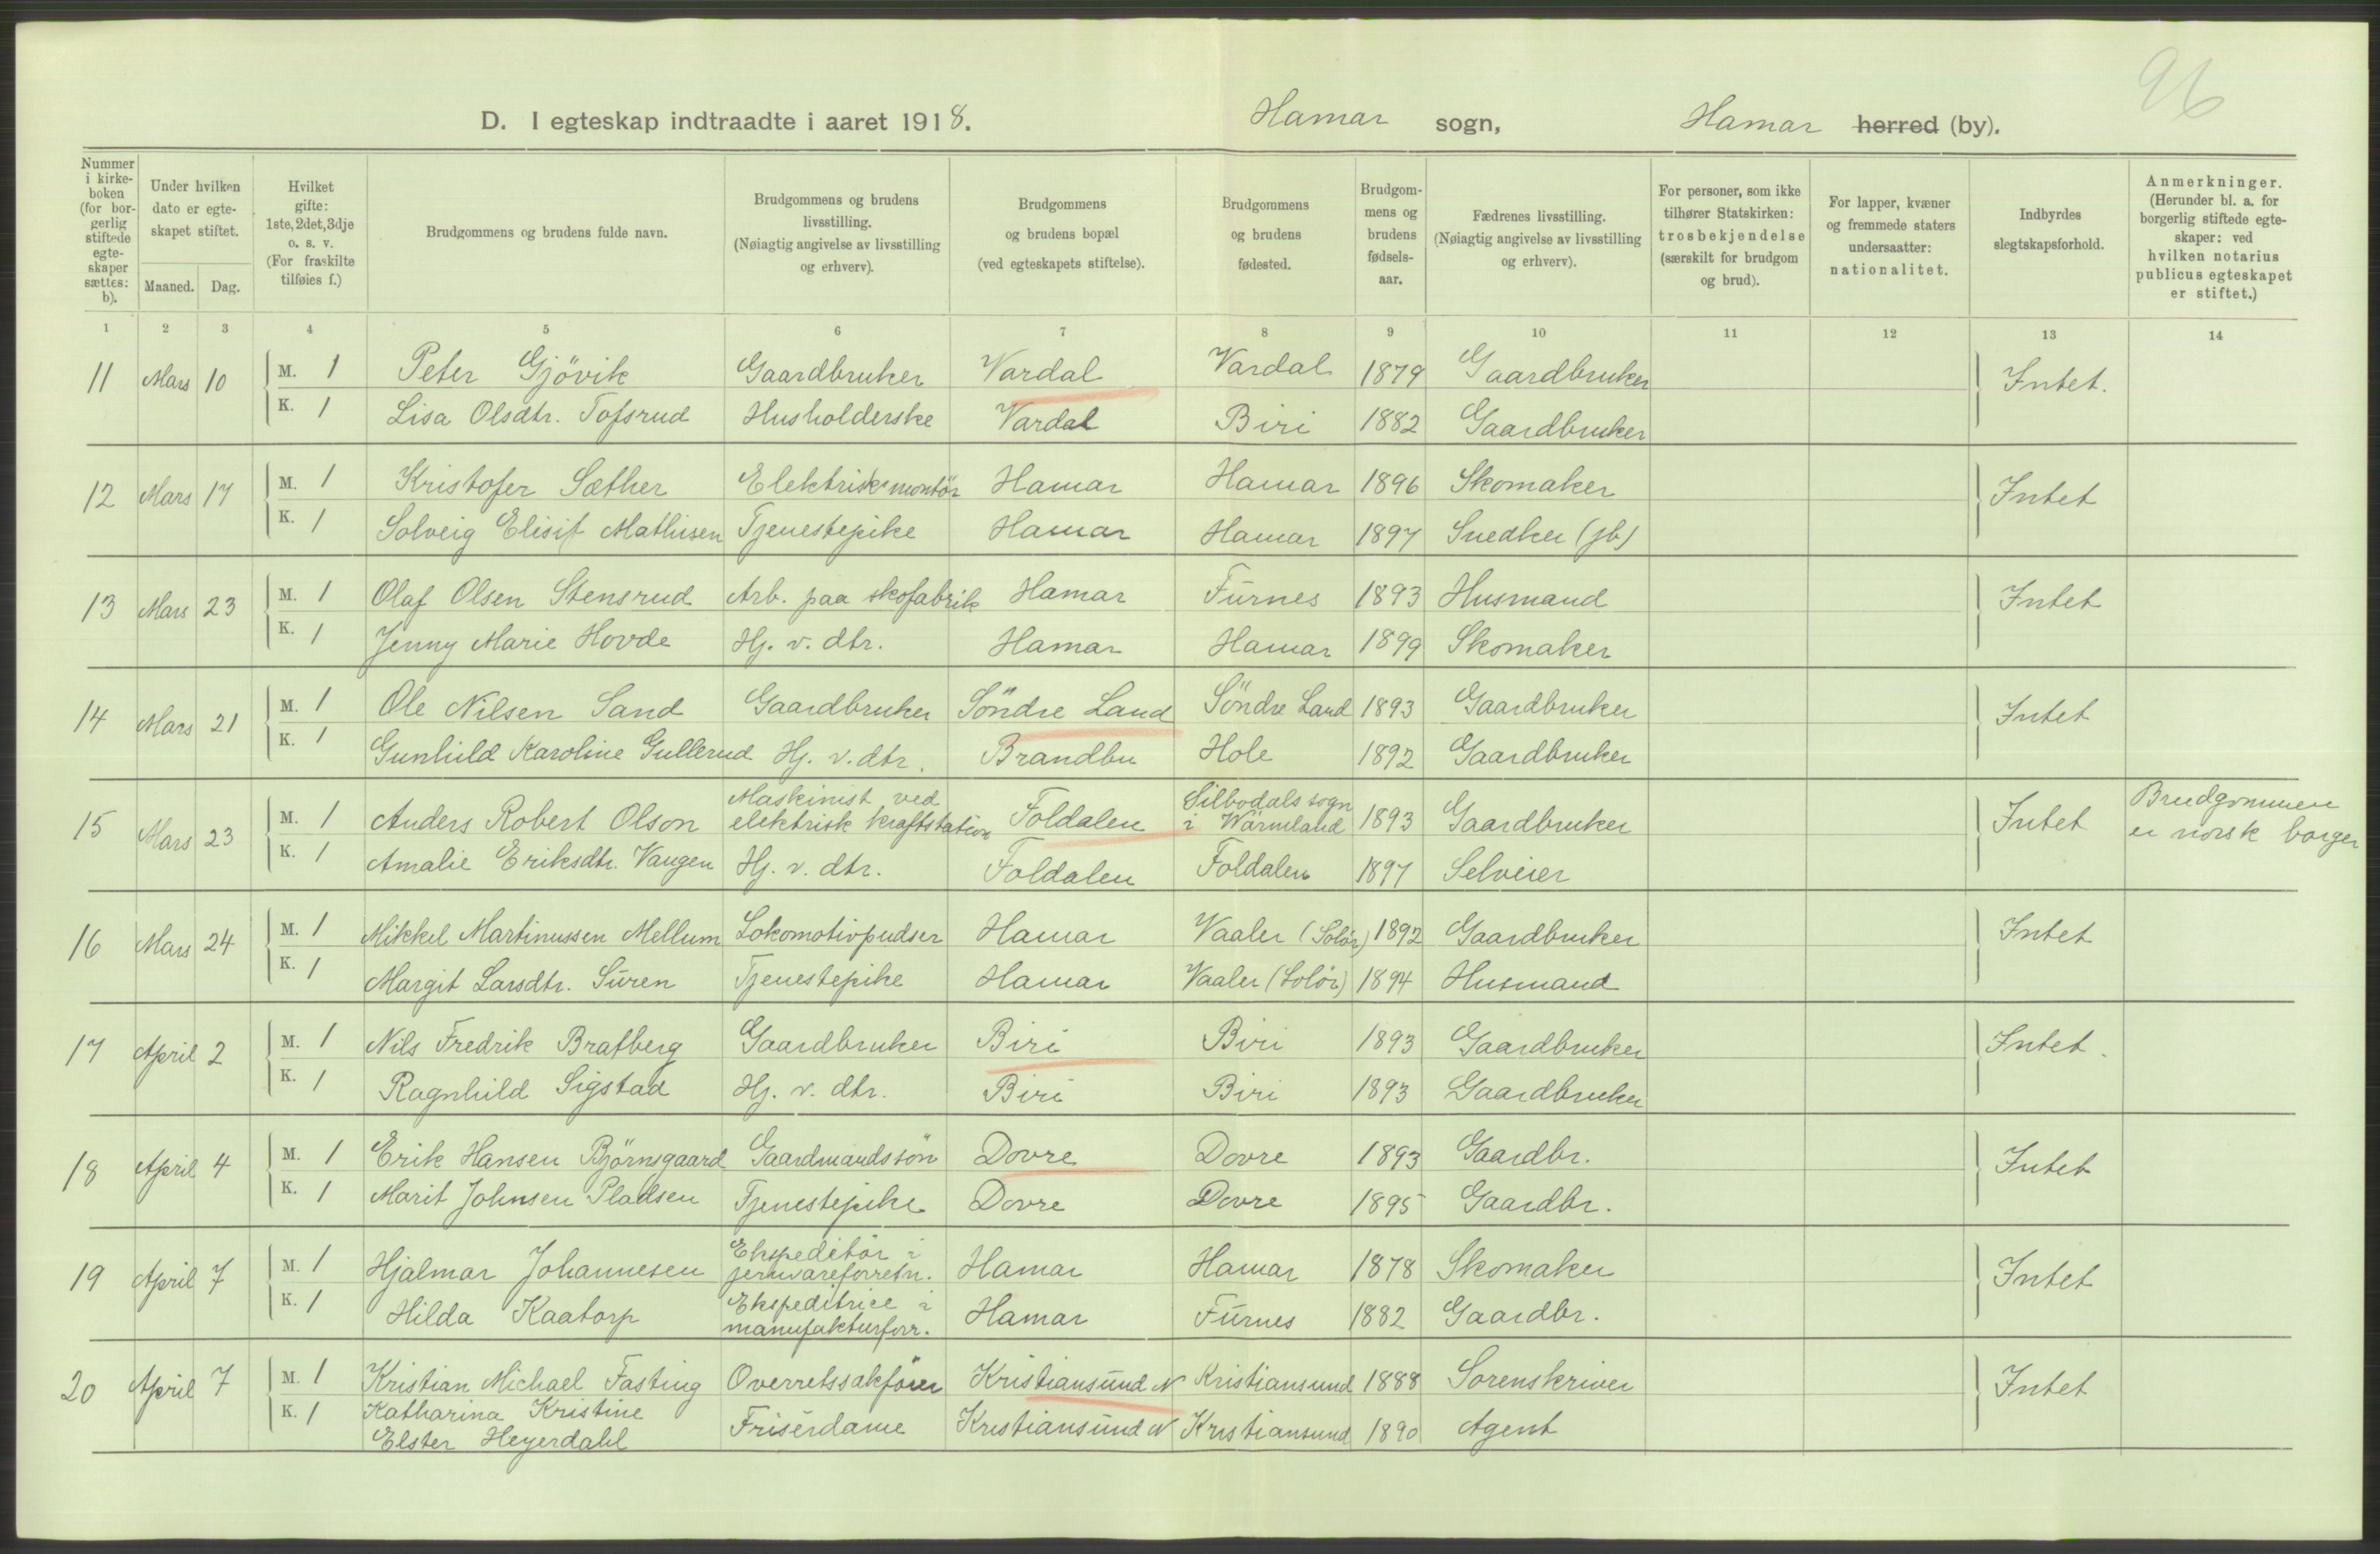 96
D. I egteskap indtraadte i aaret 1918. Hamar sogn, Hamar herred (by).
Nummer i kirkeboken (for borgerlig stiftede egteskaper sættes: b).
Under hvilken dato er egteskapet stiftet.
Maaned. Dag.
Hvilket gifte: 1ste, 2det, 3dje o. s. v. (For fraskilte tilføies f.)
Brudgommens og brudens fulde navn.
Brudgommens og brudens livsstilling. (Nøiagtig angivelse av livsstilling og erhverv).
Brudgommens og brudens bopæl (ved egteskapets stiftelse).
Brudgommens og brudens fødested.
Brudgommens og brudens fødselsaar.
Fædrenes livsstilling. (Nøiagtig angivelse av livsstilling og erhverv).
For personer, som ikke tilhører Statskirken: trosbekjendelse (særskilt for brudgom og brud).
For lapper, kvæner og fremmede staters undersaatter: nationalitet.
Indbyrdes slegtskapsforhold.
Anmerkninger. (Herunder bl. a. for borgerlig stiftede egteskaper: ved hvilken notarius publicus egteskapet er stiftet.)
1 2 3 4 5 6 7 8 9 10 11 12 13 14
11 Mars 10 M. 1 Peter Gjövik Gaardbruker Vardal Vardal 1879 Gaardbruker Intet.
K. 1 Lisa Olsdtr. Tofsrud Husholderske Vardal Biri 1882 Gaardbruker
12 Mars 17 M. 1 Kristofer Sæther Elektriskmontör Hamar Hamar 1896 Skomaker Intet
K. 1 Solveig Elisif Mathisen Tjenestepike Hamar Hamar 1897 Snedker (jb)
13 Mars 23 M. 1 Olaf Olsen Stensrud Arb. paa skofabrik Hamar Furnes 1893 Husmand Intet
K. 1 Jenny Marie Hovde Hj. v. dtr. Hamar Hamar 1899 Skomaker
14 Mars 21 M. 1 Ole Nilsen Sand Gaardbruker Söndre Land Söndre Land 1893 Gaardbruker Intet
K. 1 Gunhild Karoline Gullerud Hj. v. dtr. Brandbu Hole 1892 Gaardbruker
15 Mars 23 M. 1 Anders Robert Olson Maskinist ved elektrisk kraftstation Foldalen Silbodals sogn i Wärmland 1893 Gaardbruker Intet Brudgommen er norsk borger
K. 1 Amalie Eriksdtr. Vangen Hj. v. dtr. Foldalen Foldalen 1897 Selveier
16 Mars 24 M. 1 Mikkel Martinussen Mellum Lokomotivpudser Hamar Vaaler (Solör) 1892 Gaardbruker Intet
K. 1 Margit Larsdtr. Suren Tjenestepike Hamar Vaaler (Solör) 1894 Husmand
17 April 2 M. 1 Nils Fredrik Bratberg Gaardbruker Biri Biri 1893 Gaardbruker Intet.
K. 1 Ragnhild Sigstad Hj. v. dtr. Biri Biri 1893 Gaardbruker
18 April 4 M. 1 Erik Hansen Björnsgaard Gaardmandssön Dovre Dovre 1893 Gaardbr. Intet
K. 1 Marit Johnsen Pladsen Tjenestepike Dovre Dovre 1895 Gaardbr.
19 April 7 M. 1 Hjalmar Johannesen Ekspeditör i jernvareforretn. Hamar Hamar 1878 Skomaker Intet
K. 1 Hilda Kaatorp Ekspeditrice i manufakturforr. Hamar Furnes 1882 Gaardbr.
20 April 7 M. 1 Kristian Michael Fasting Overretssakförer Kristiansund N Kristiansund 1888 Sorenskriver Intet
K. 1 Katharina Kristine Elster Heyerdahl Frisérdame Kristiansund N Kristiansund 1890 Agent